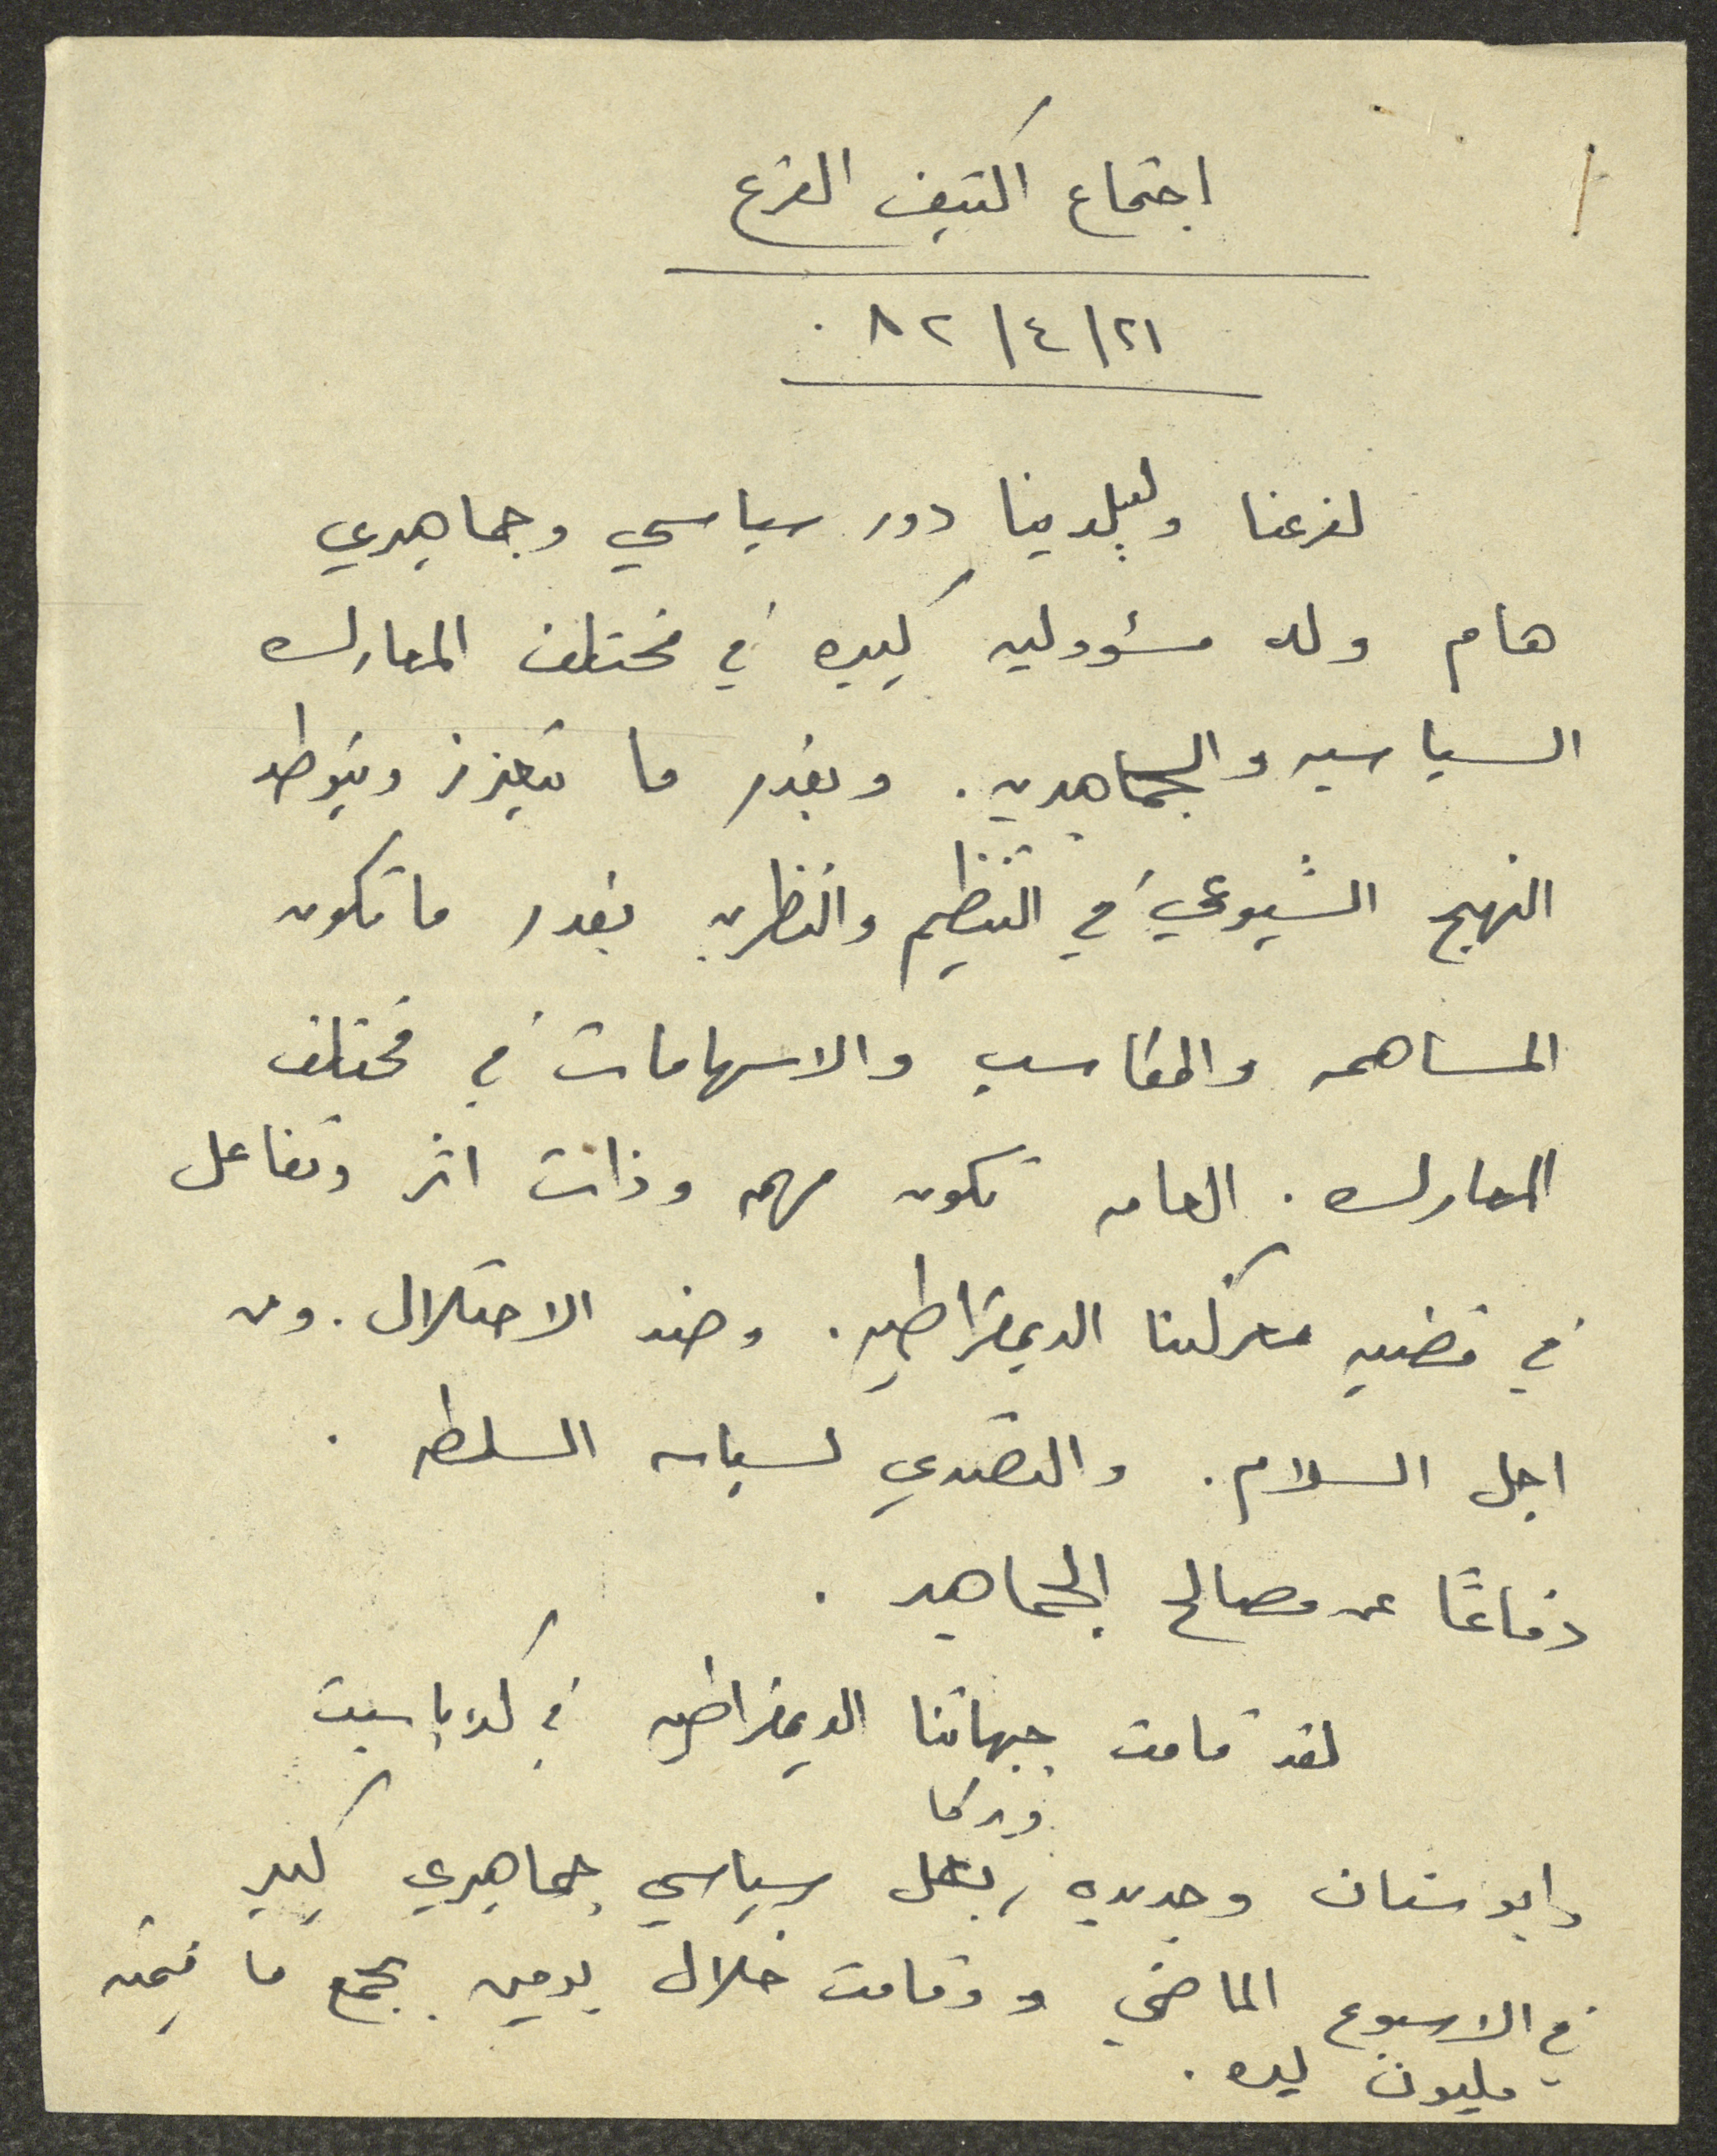 اجتماع اكتيف الفرع
٢١/٤/٨٢.
لفرعنا ولبلدينا دور سياسي وجماهيري
هام وله مسؤوليه كبيره في مختلف المعارك
السياسيه والجماهيريه. وبقدر ما يتعزز ويتوطد
النهج الشيوعي في التنظيم والنظريه بقدر ما تكون
المساهمه والمكاسب والاسهامات في مختلف
المعارك. العامه تكون مهمه وذات اثر وتفاعل
في قضيه معركتنا الديمقراطيه. وضد الاحتلال. ومن
اجل السلام. والتصدي لسياسه السلطه.
دفاعًا عن مصالح الجماهير.
لقد قامت جبهاتنا الديمقراطيه في كفرياسيف
وابوسنان وجديده ويركا بعمل سياسي جماهيري كبير
في الاسبوع الماضي وقامت خلال يومين بجمع ما قيمته
مليون ليره.